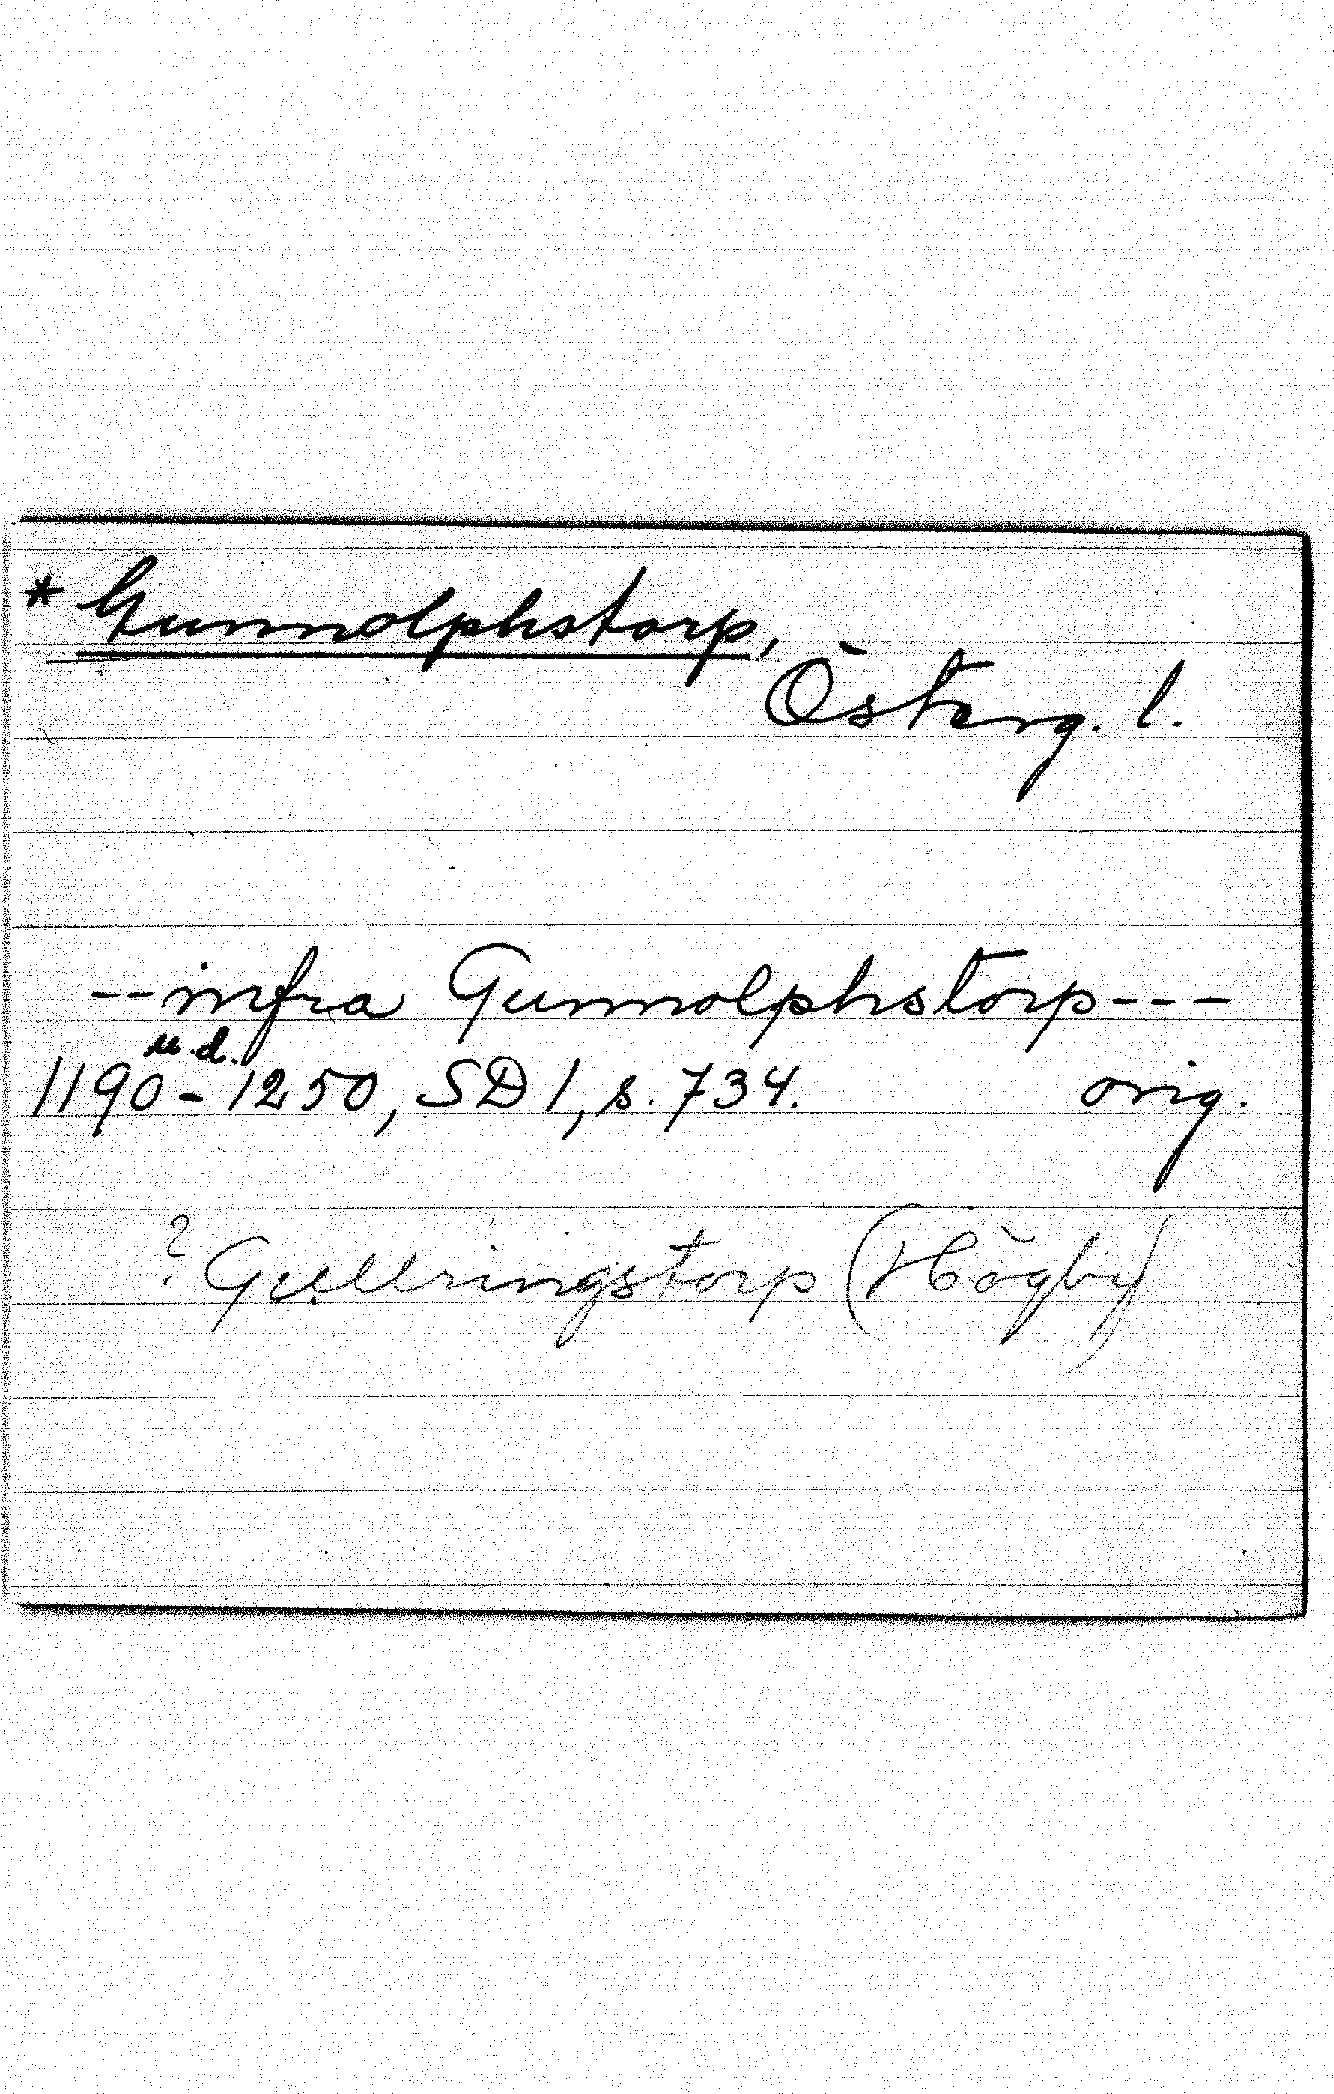 * Gunnolphstorp,
Österg. l.
-- infra Gunnolphstorp ---
u.d.
1190-1250, SD 1, s. 734. orig.
? Gullringstorp (Högby)